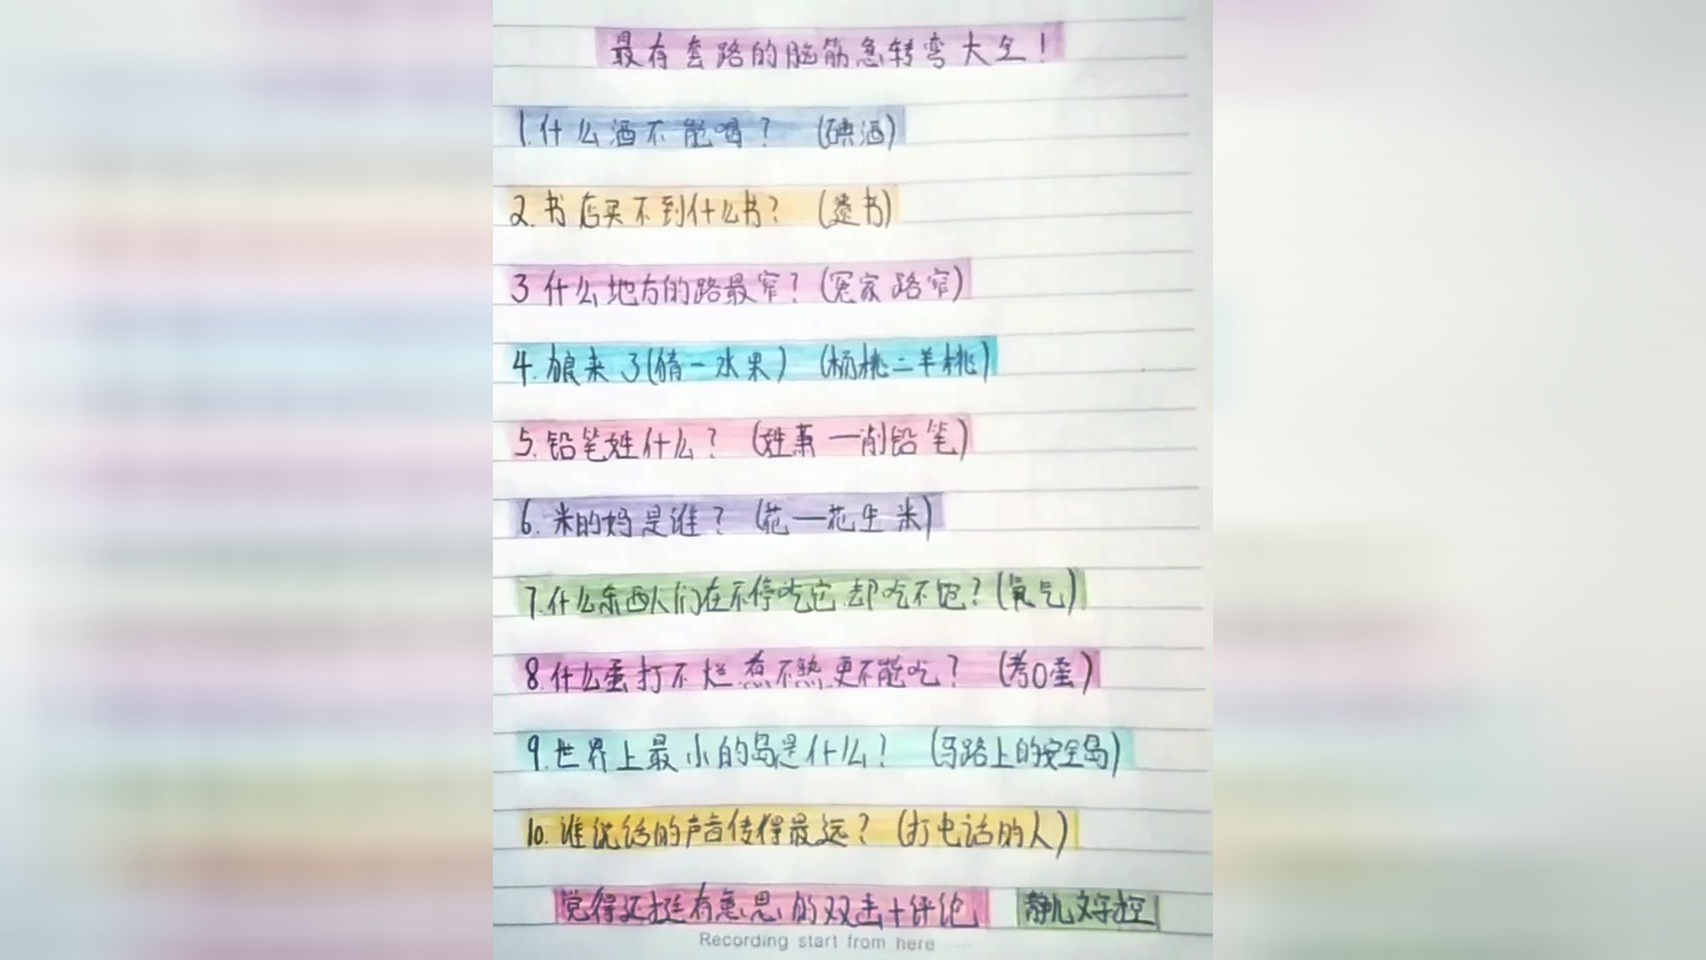 最有套路的脑筋急转弯大全！
1.什么酒不能喝？（碘酒）
2.书店买不到什么书？（遗书）
3什么地方的路最窄？（冤家路窄）
4.狼来了（猜一水果）（杨桃二羊桃）
5.铅笔姓什么？（姓萧一削铅笔）
6.米的妈是谁？（花一花生米）
7.什么东西人们在不停吃它却吃不饱？（氧气）
8.什么蛋打不烂煮不熟更不能吃？（考0蛋）
9.世界上最小的岛是什么？（马路上的安全岛）
10.谁说话的声音传得最远？（打电话的人）
觉得还挺有意思的双击+评论 静儿文字控
Recording start from here